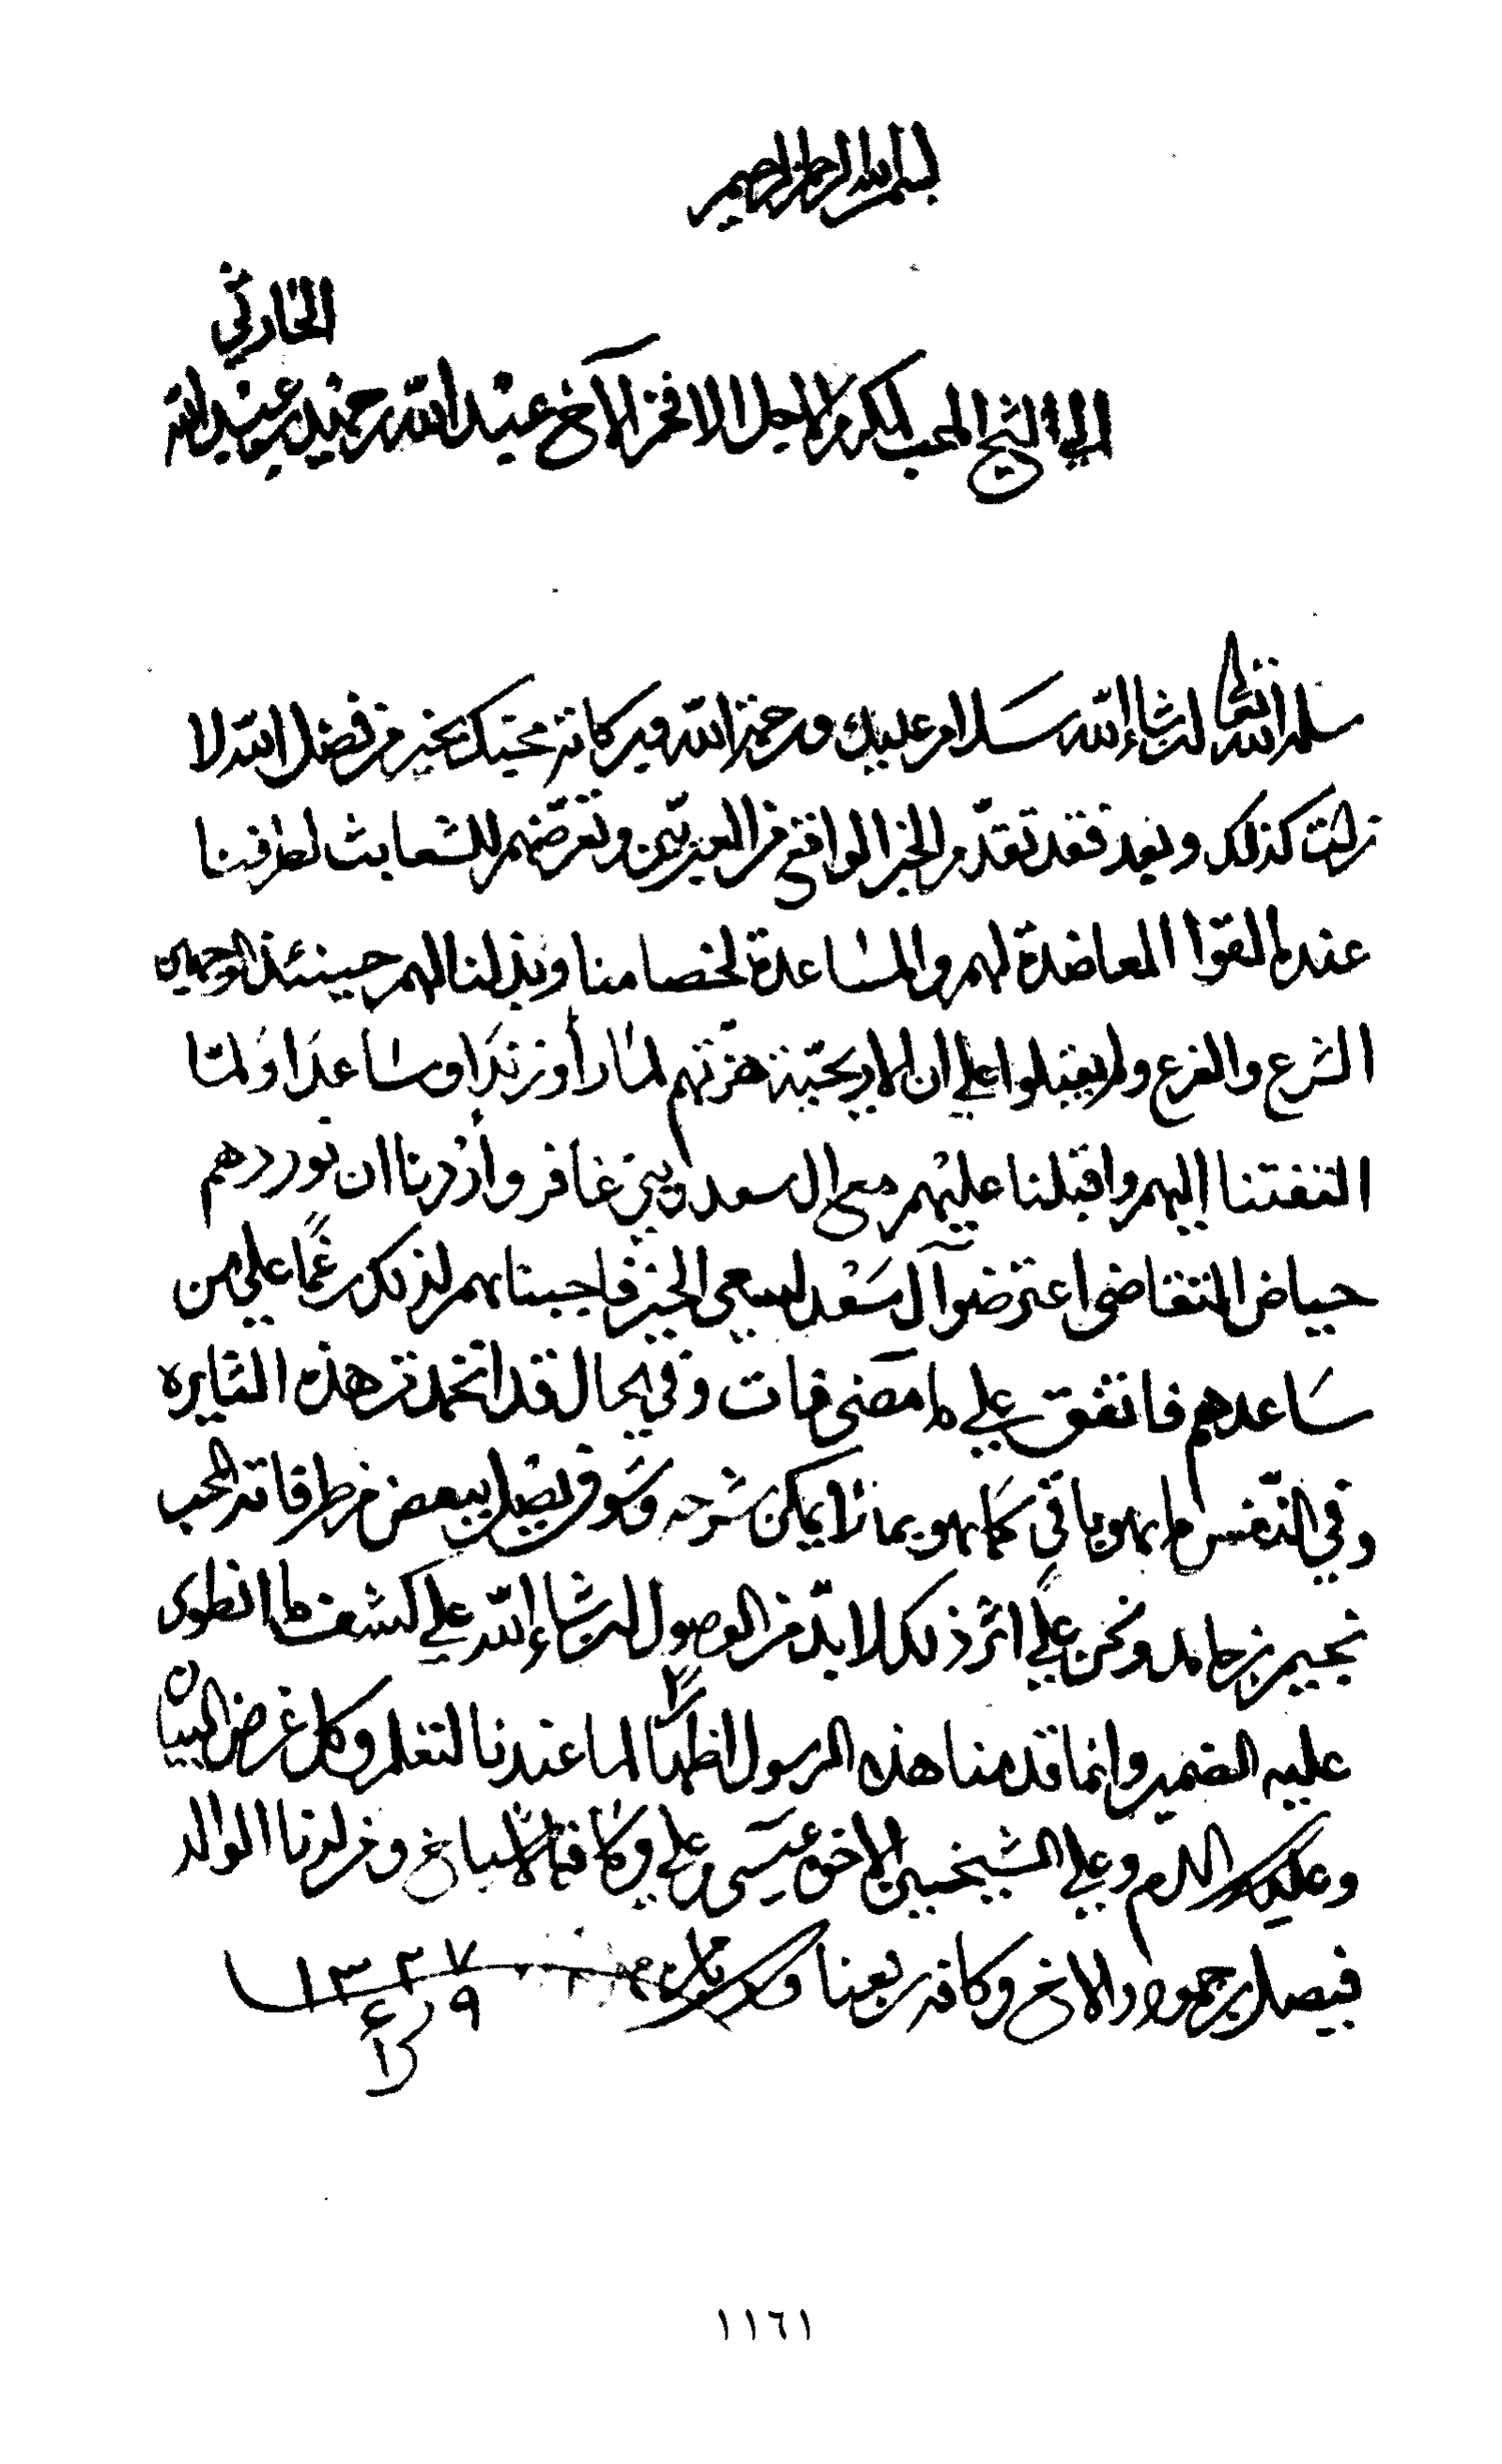 بسم الله الرحمن الرحيم
الحارثي
الى الشيخ المحب المكرم الاجل الافخر الآخ عبد الله بن حميد بن عبد الله
سلمه الله تعالى ان شاء الله سلام عليك ورحمة الله وبركاته محبك بخير من فضل الله لا
زلت كذلك وبعد فقد تقدم الخبر الواقع من العبريين وتعرضهم للشعابث لطرفنا
عند ما لقوا المعاضدة لهم والمساعدة لخصامنا وبذلنا لهم حينئذ الوجهين
الشرع والفرع ولم يقبلوا على ان الاريحية هزتهم لما رأوا زندا وساعدا ولما
التفتنا اليهم واقبلنا عليهم مع ال سعد وبني غافر واردنا ان نوردهم
حياض المتقاضى اعترضوا آل سعد لسعي الخير فاجبناهم لذلك رغما على من
ساعدهم فاتفق على ما مضى فات وفي الحال قد اخمدت هذه النايره
وفي النفس ما هو باقي كما هو بما لا يمكن شرحه وسوف يصل ببعض من طرفاته المحب
نجيم بن ونحن على اثر ذلك لا بد من الوصول ان شاء الله على كشف ما انطوى
عليه الضمير وانما قدمنا هذه الرسول اظهارا لما عندنا لتعلم وكل غرض البيان
وعليك السلام وعلى الشيخين الاخ عيسى وعلي وكافة الاشياخ ومن لدنا الوالد
فيصل بن حمود والاخ وكافة ربعنا
١٣٢٧
٩ ر٤